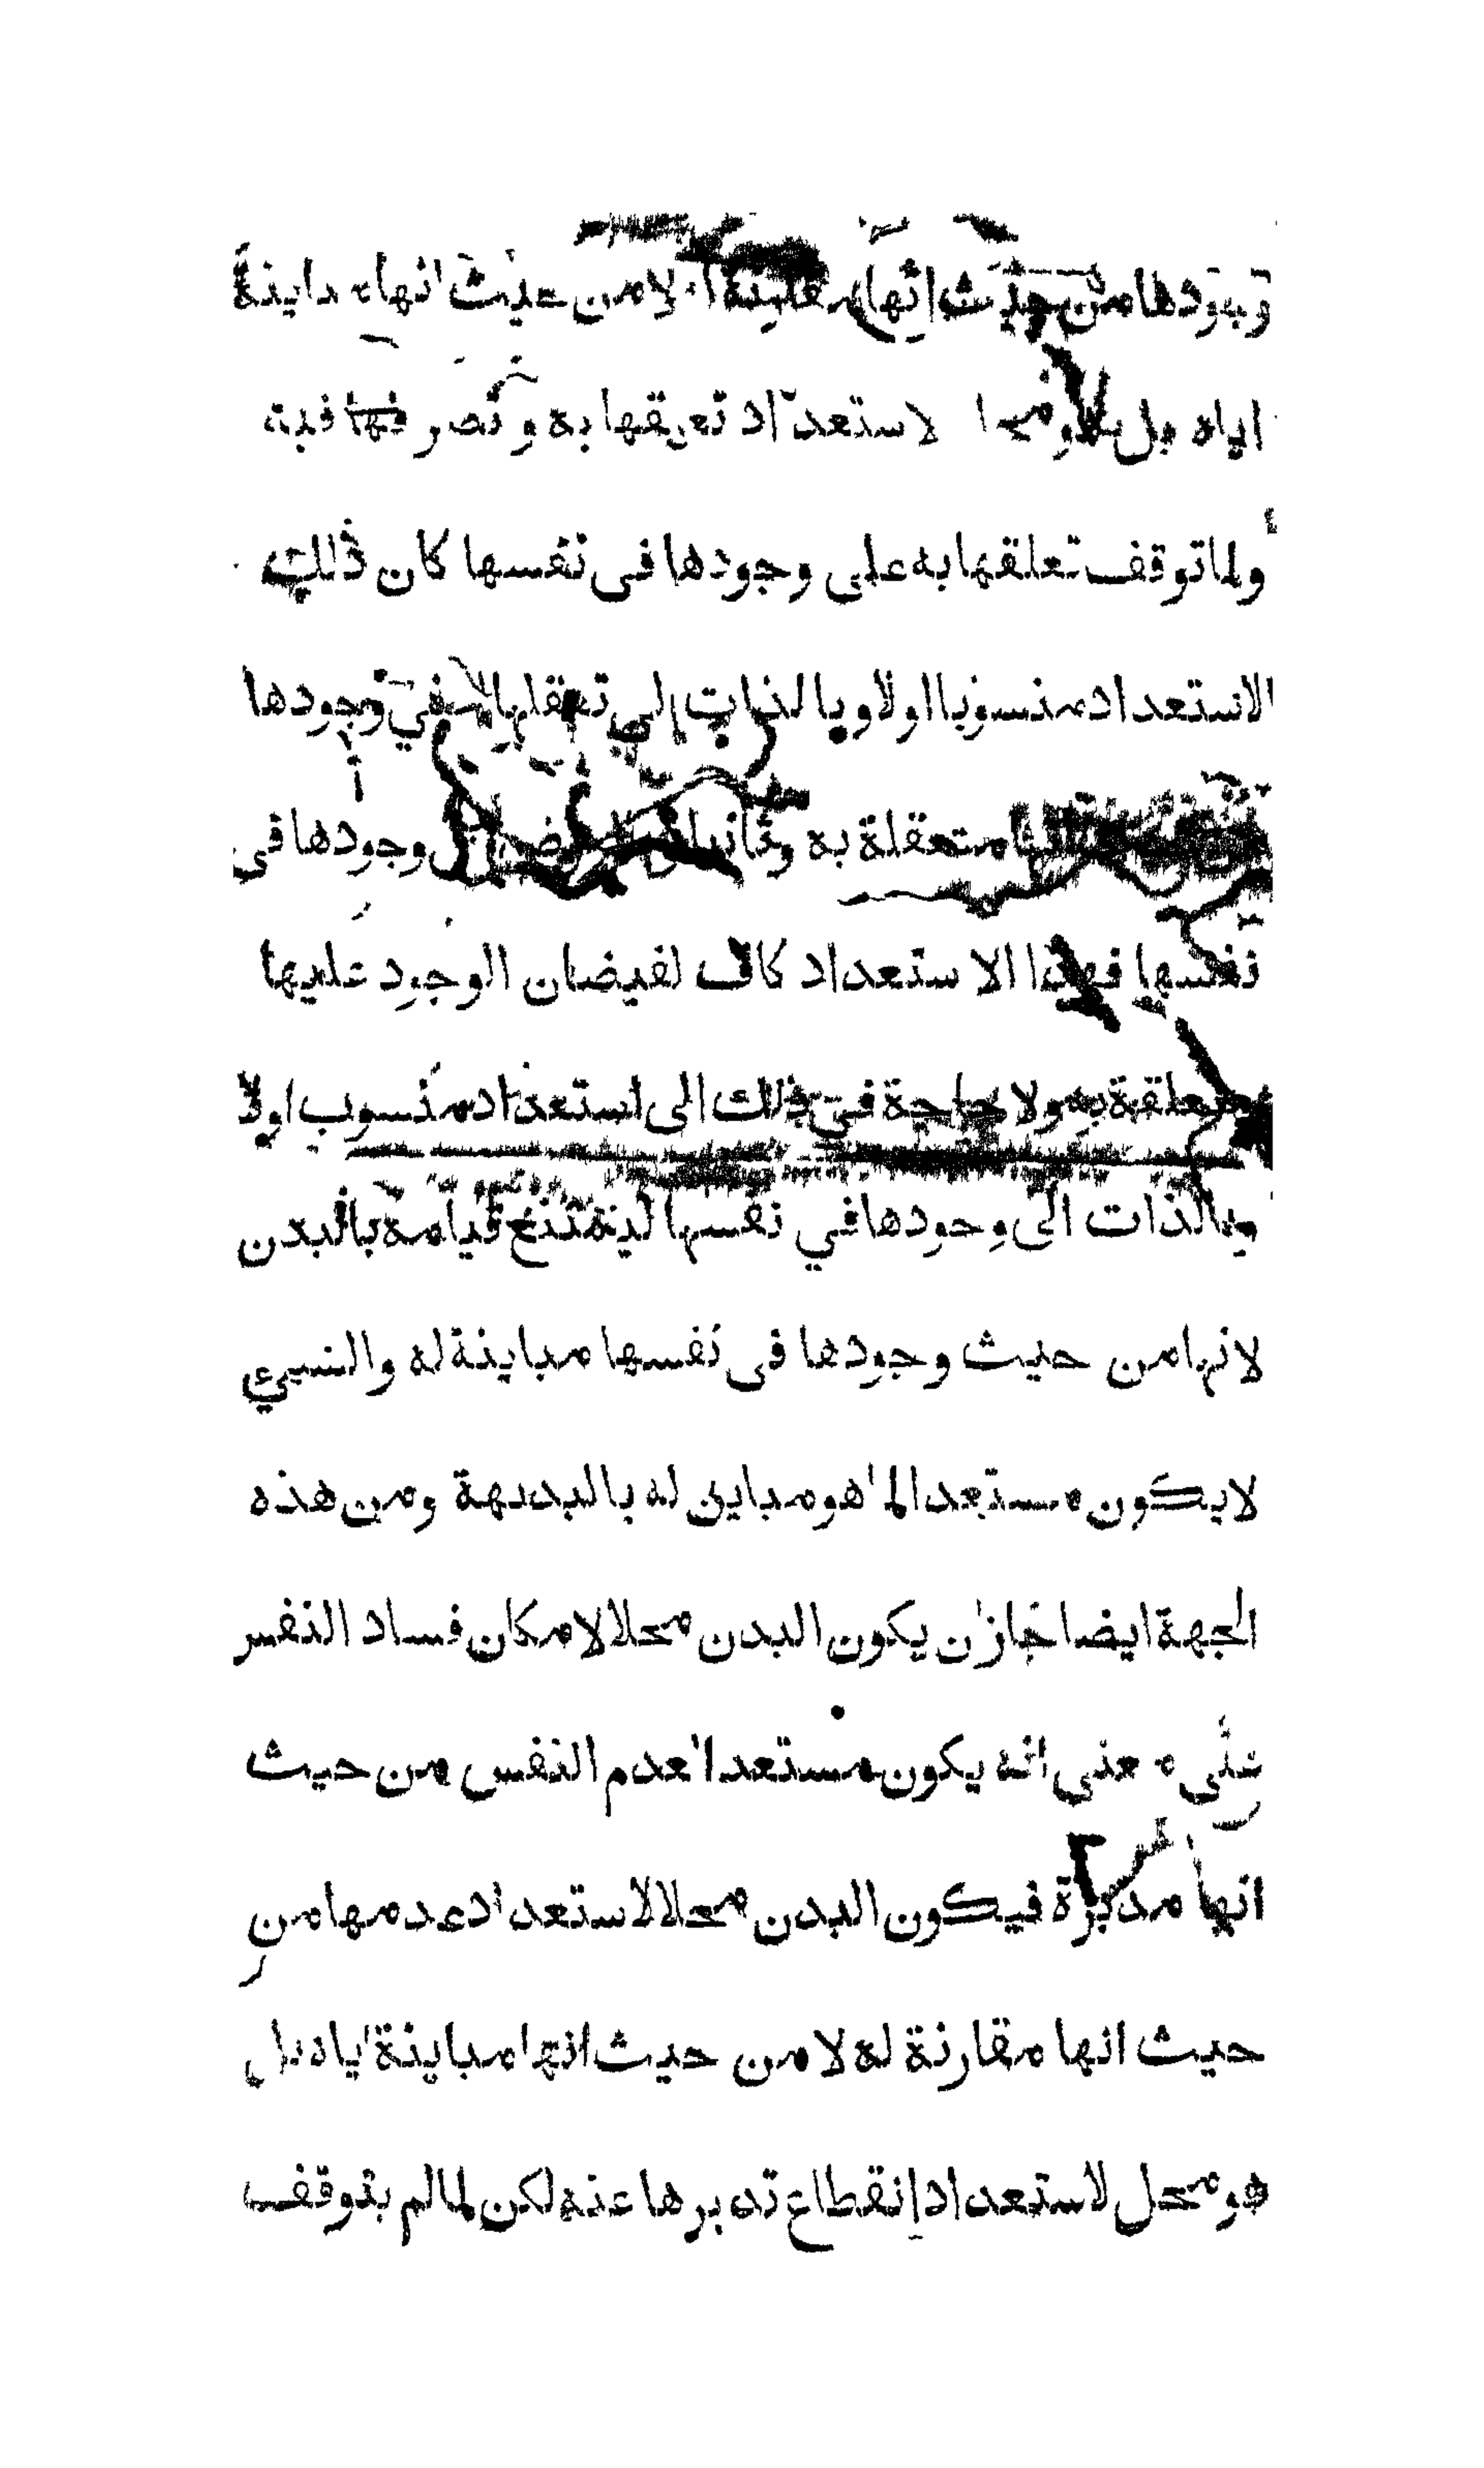 وجودها من حيث انها مقارنة له لا من حيث انها مباينة
اياه بل محل لاستعداد تعلقها به وتصرفها فيه
ولما توقف تعلقها به على وجودها في نفسها كان ذلك
الاستعداد منسوبا اولا وبالذات الى تعلقها وجودها
متعلقة به وثانيا وجودها في
نفسها فهذا الاستعداد كاف لفيضان الوجود عليها
متعلقة به ولا حاجة في ذلك الى استعداد منسوب اولا
وبالذات الى وجودها في نفسها ليمتنع قيامه بالبدن
لانها من حيث وجودها في نفسها مباينة له والشيء
لا يكون مستعدا لما هو مباين له بالبديهة ومن هذه
الجهة ايضا جاز ان يكون البدن محلا لامكان فساد النفس
على معنى انه يكون مستعدا لعدم النفس من حيث
انها مدبرة فيكون البدن محلا لاستعداد عدمها من
حيث انها مقارنة له لا من حيث انها مباينة اياه بل
هو محل لاستعداد انقطاع تدبيرها عنه لكن لما لم يتوقف